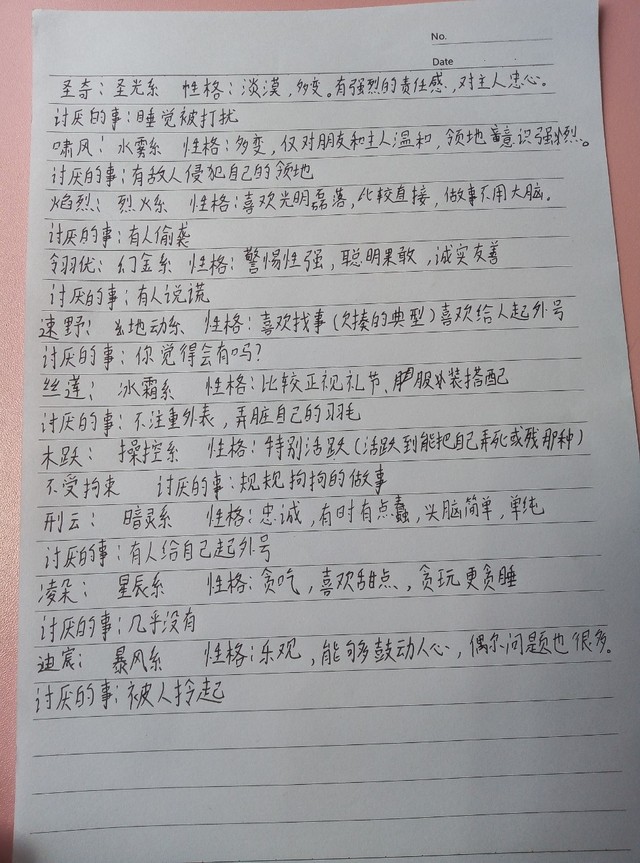 No.
Date
圣奇：圣光系 性格：淡漠，多变。有强烈的责任感，对主人忠心。
讨厌的事：睡觉被打扰
啸风：水雾系 性格：多变，仅对朋友和主人温和，领地意识强烈。
讨厌的事：有敌人侵犯自己的领地
焰烈：烈火系 性格：喜欢光明磊落，比较直接，做事不用大脑。
讨厌的事：有人偷袭
翎羽优：幻金系 性格：警惕性强，聪明果敢，诚实友善
讨厌的事：有人说谎
速野：地动系 性格：喜欢找事（欠揍的典型）喜欢给人起外号
讨厌的事：你觉得会有吗？
丝莲： 冰霜系 性格：比较正视礼节、服装搭配
讨厌的事：不注重外表，弄脏自己的羽毛
木跃： 操控系 性格：特别活跃（活跃到能把自己弄死或残那种）
不受拘束 讨厌的事：规规拘拘的做事
刑云： 暗灵系 性格：忠诚，有时有点蠢，头脑简单，单纯
讨厌的事：有人给自己起外号
凌朵： 星辰系 性格：贪吃，喜欢甜点，贪玩更贪睡
讨厌的事：几乎没有
迪宸： 暴风系 性格：乐观，能够鼓动人心，偶尔问题也很多。
讨厌的事：被人拎起